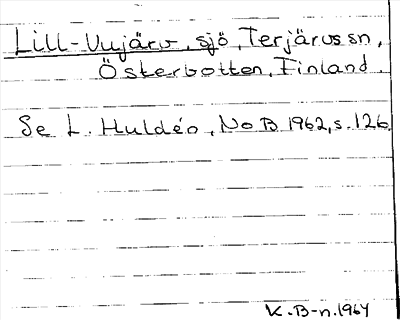 Lill-Vujärv, sjö, Terjärvs sn,
Österbotten, Finland.
Se L. Huldén, NoB 1962, s. 126.
K. B-n. 1964